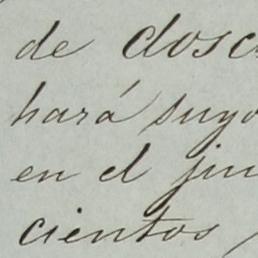 de dosc
hará suyo
en el jui
cientos